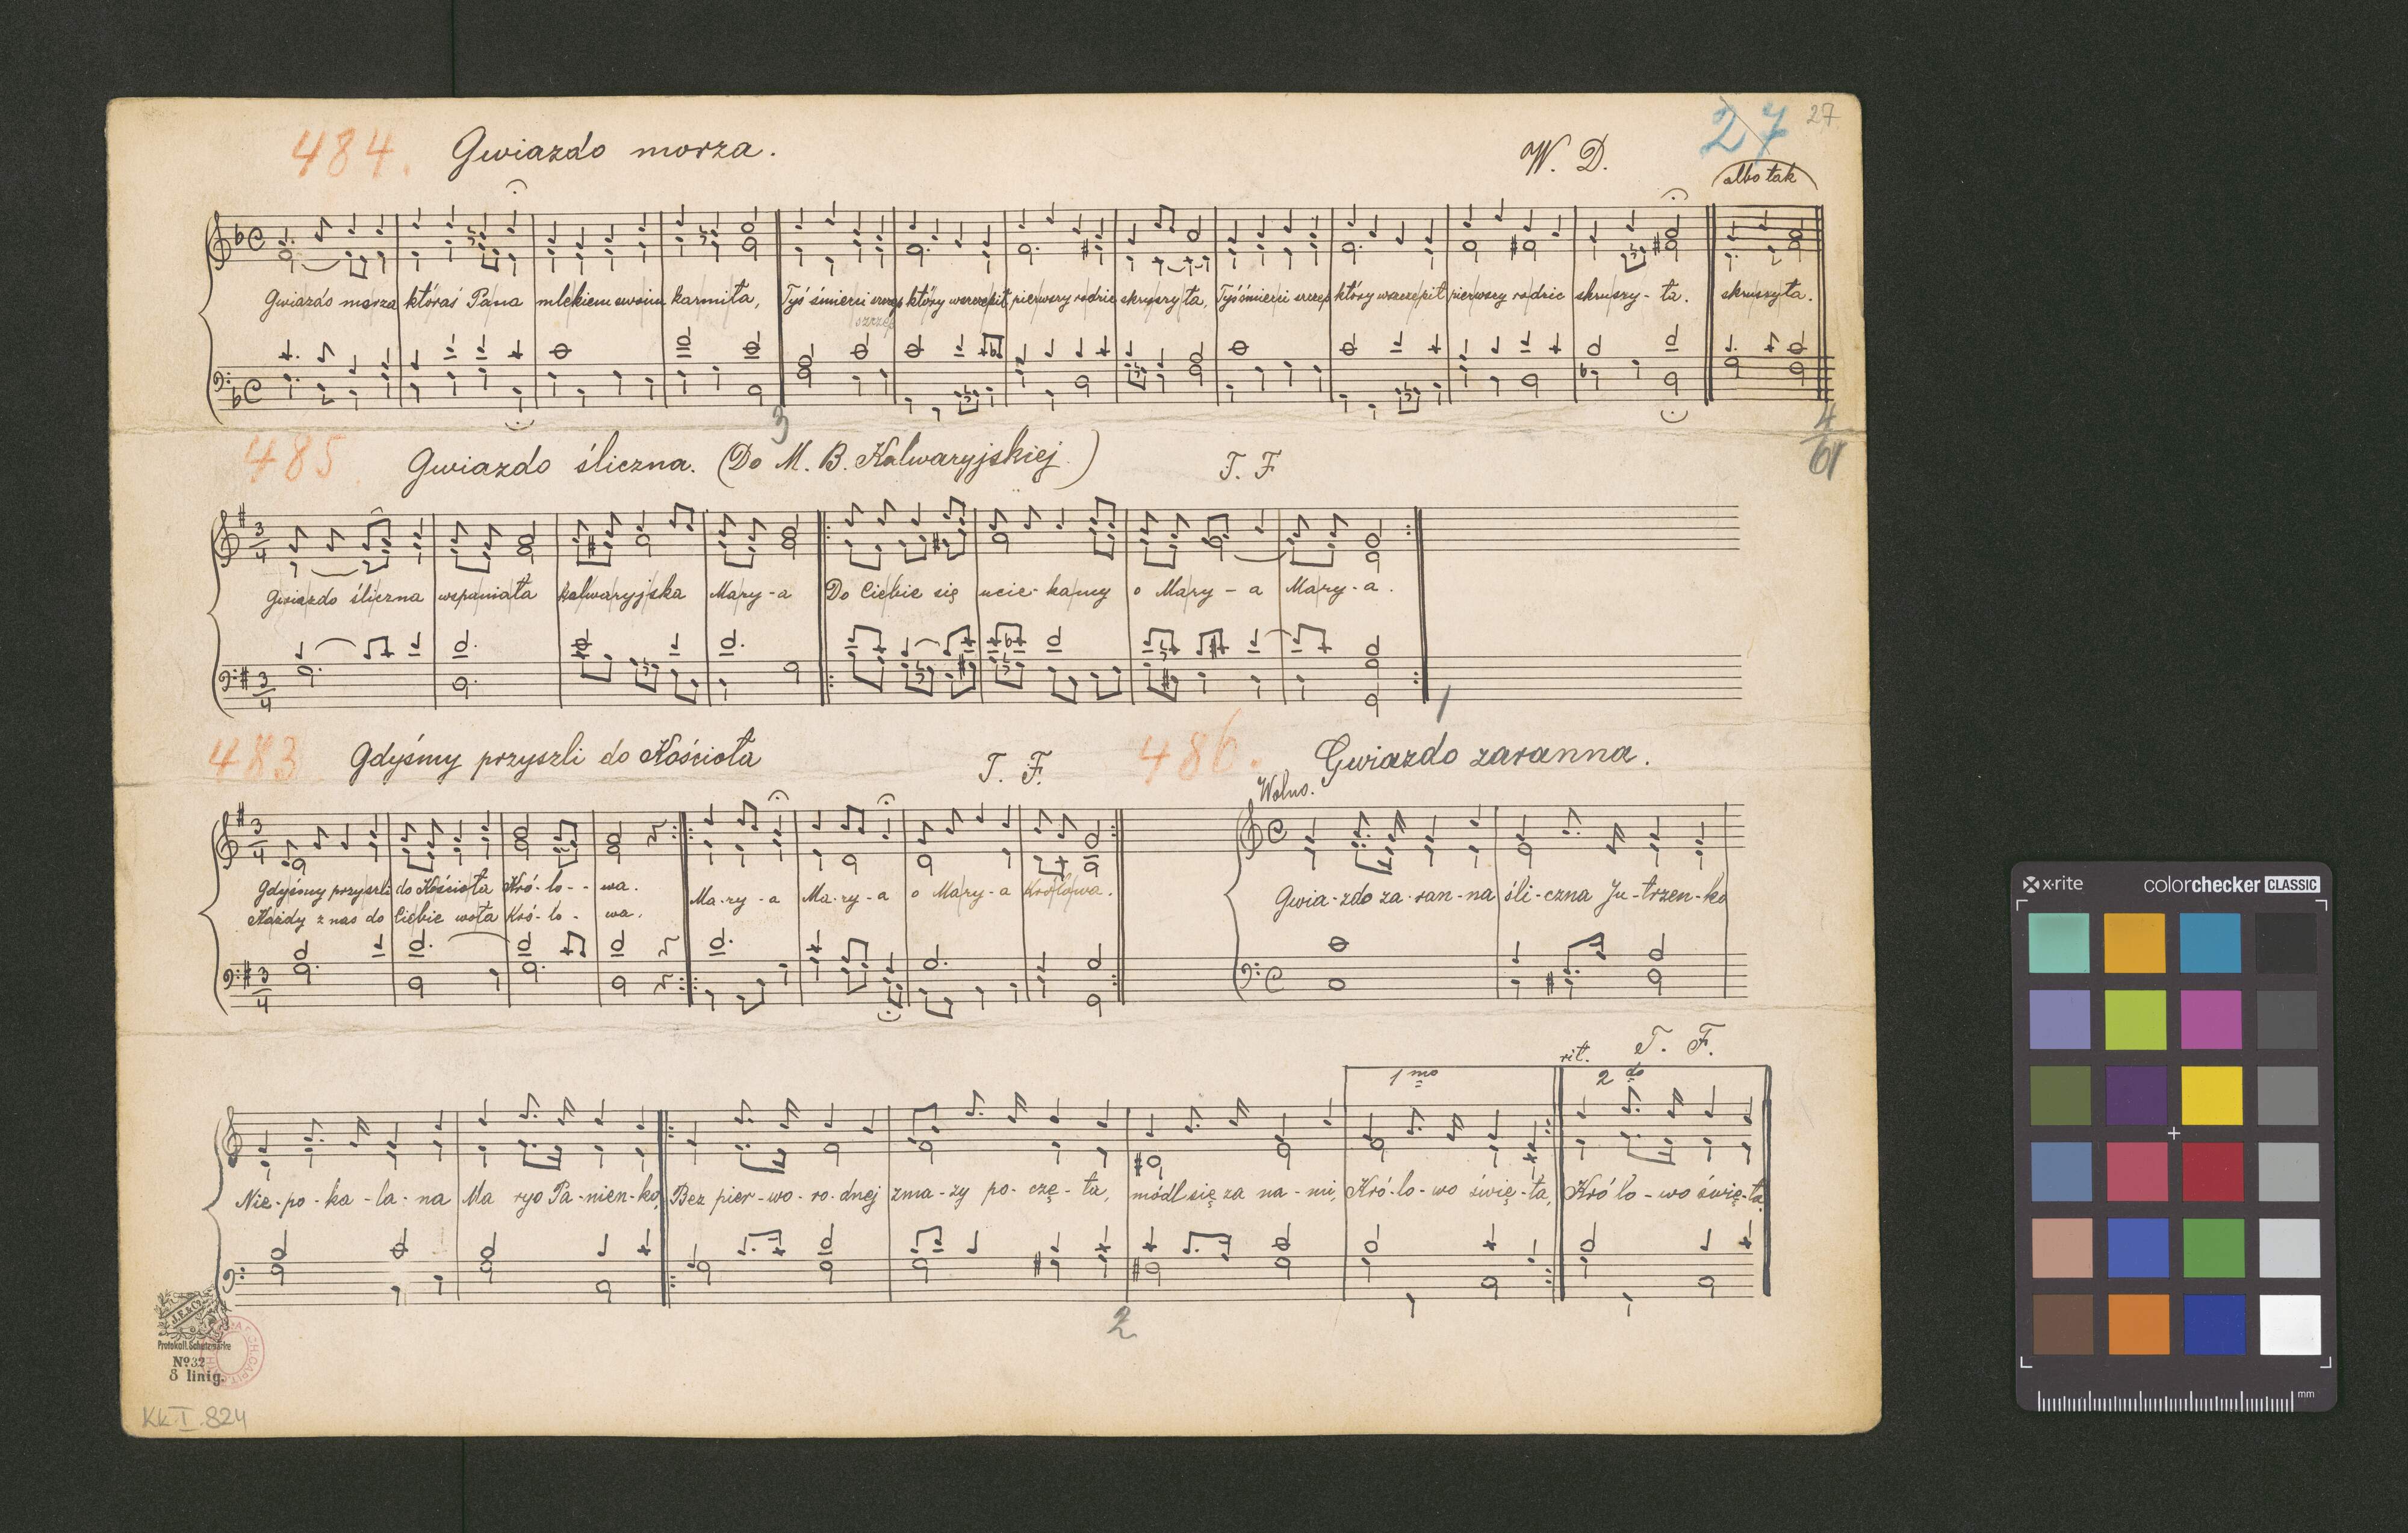 27 27
484. Gwiazdo morza. W. D.
albo tak
Gwiazdo morza któraś Pana mlekiem swoim karmiła, Tyś śmierci szczep który wszczepił pierwszy rodzic skruszyła, Tyś śmierci szczep który wszczepił pierwszy rodzic skruszy-ła. skruszyła.
szczep
3
4
61
485. Gwiazdo śliczna. (Do M. B. Kalwaryjskiej) T. F
3 4
Gwiazdo śliczna wspaniała Kalwaryjska Mary-a Do Ciebie się ucie-kamy o Mary-a Mary-a.
3 4
1
483 Gdyśmy przyszli do Kościoła T. F.
3 4
Gdyśmy przyszli do Kościoła Kró-lo--wa. Ma-ry-a Ma-ry-a o Mary-a Krolowa.
Każdy z nas do Ciebie woła Kró-lo-wa.
3 4
486. Gwiazdo zaranna.
Wolno.
Gwia-zdo za-ran-na śli-czna Ju-trzen-ko
T. F.
rit.
1 mo 2 do
Nie-po-ka-la-na Ma ryo Pa-nien-ko, Bez pier-wo-ro-dnej zma-zy po-czę-ta, módl się za na-mi, Kró-lo-wo świę-ta, Kró lo-wo świę-ta.
2
J.E.&Co.
Protokoll. Schutzmarke
No 32
8 linig.
Kk I. 824
x-rite colorchecker CLASSIC
mm